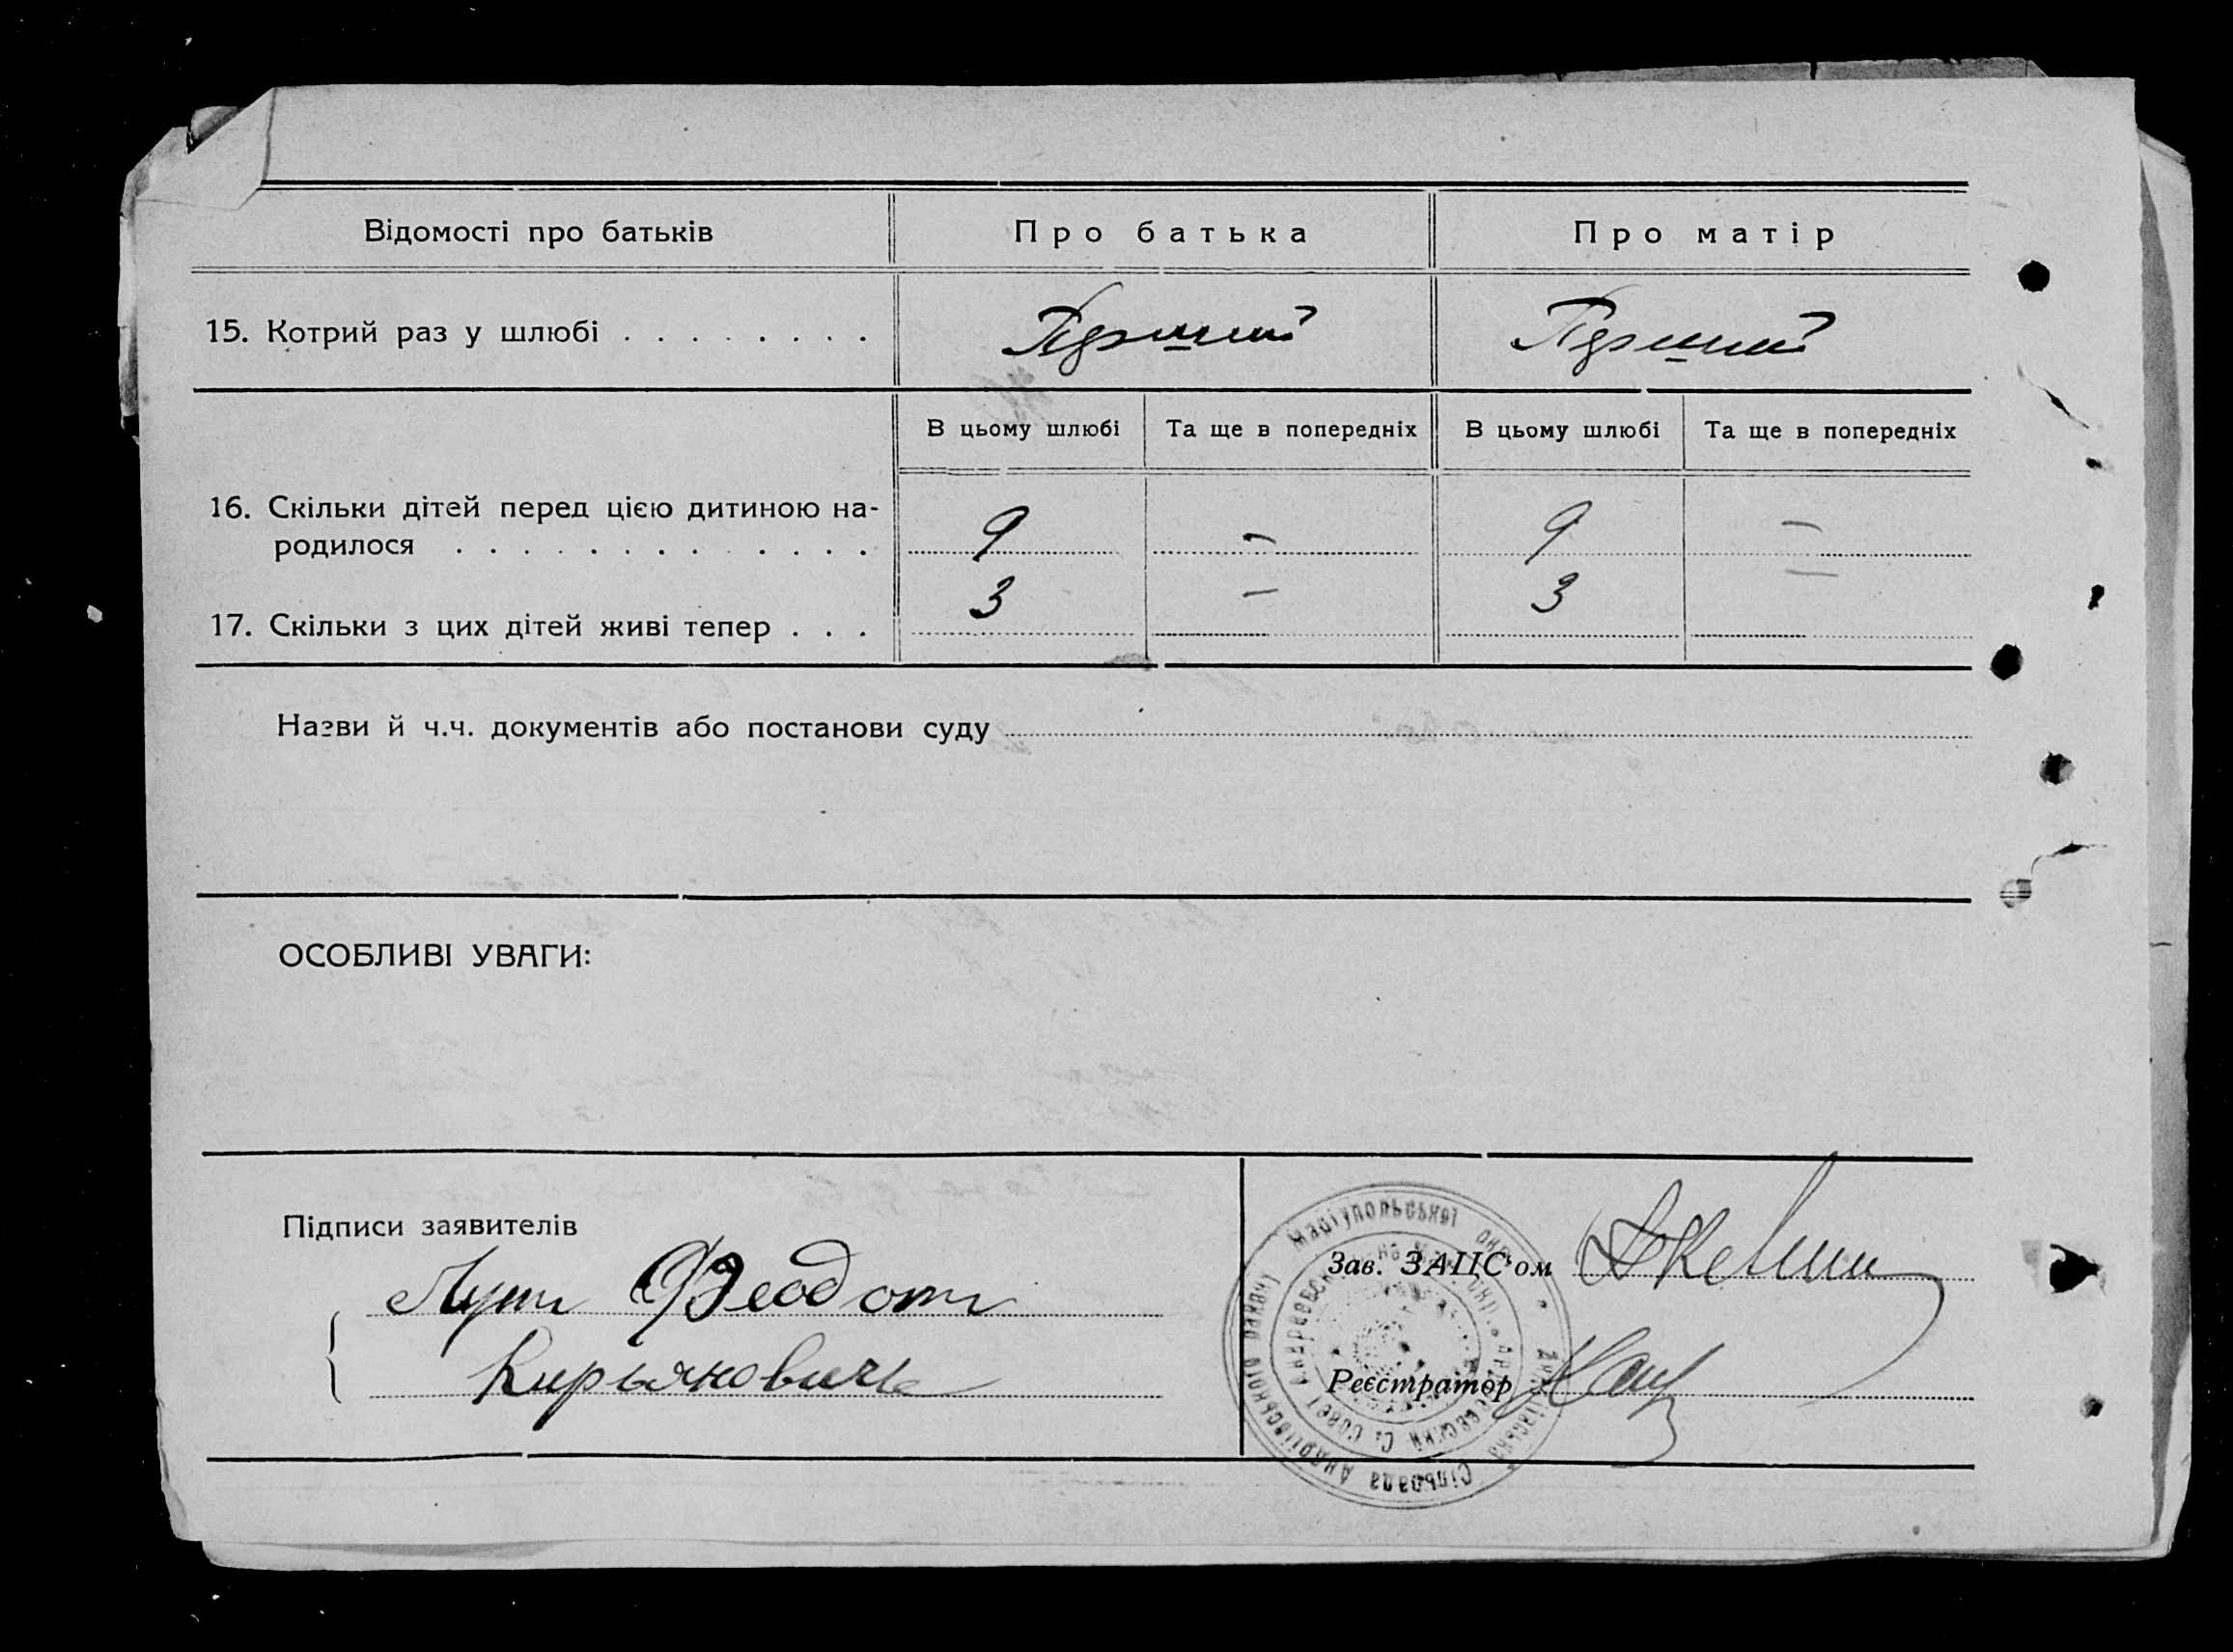 Відомості про батьків
Про батька
Про матір
15. Котрий раз у шлюбі . . . . . . . .
Перший
Перший
В цьому шлюбі
Та ще в попередніх
В цьому шлюбі
Та ще в попередніх
16. Скільки дітей перед цією дитиною на-
родилося . . . . . . . . . . . . .
9
–
9
–
17. Скільки з цих дітей живі тепер . . .
3
–
3
–
Назви й ч.ч. документів або постанови суду
ОСОБЛИВІ УВАГИ:
Підписи заявителів
Феодот
Кирьякович
Зав. ЗАЦС'ом
Реєстратор
Маріупольської
Сільрада Андріївського району